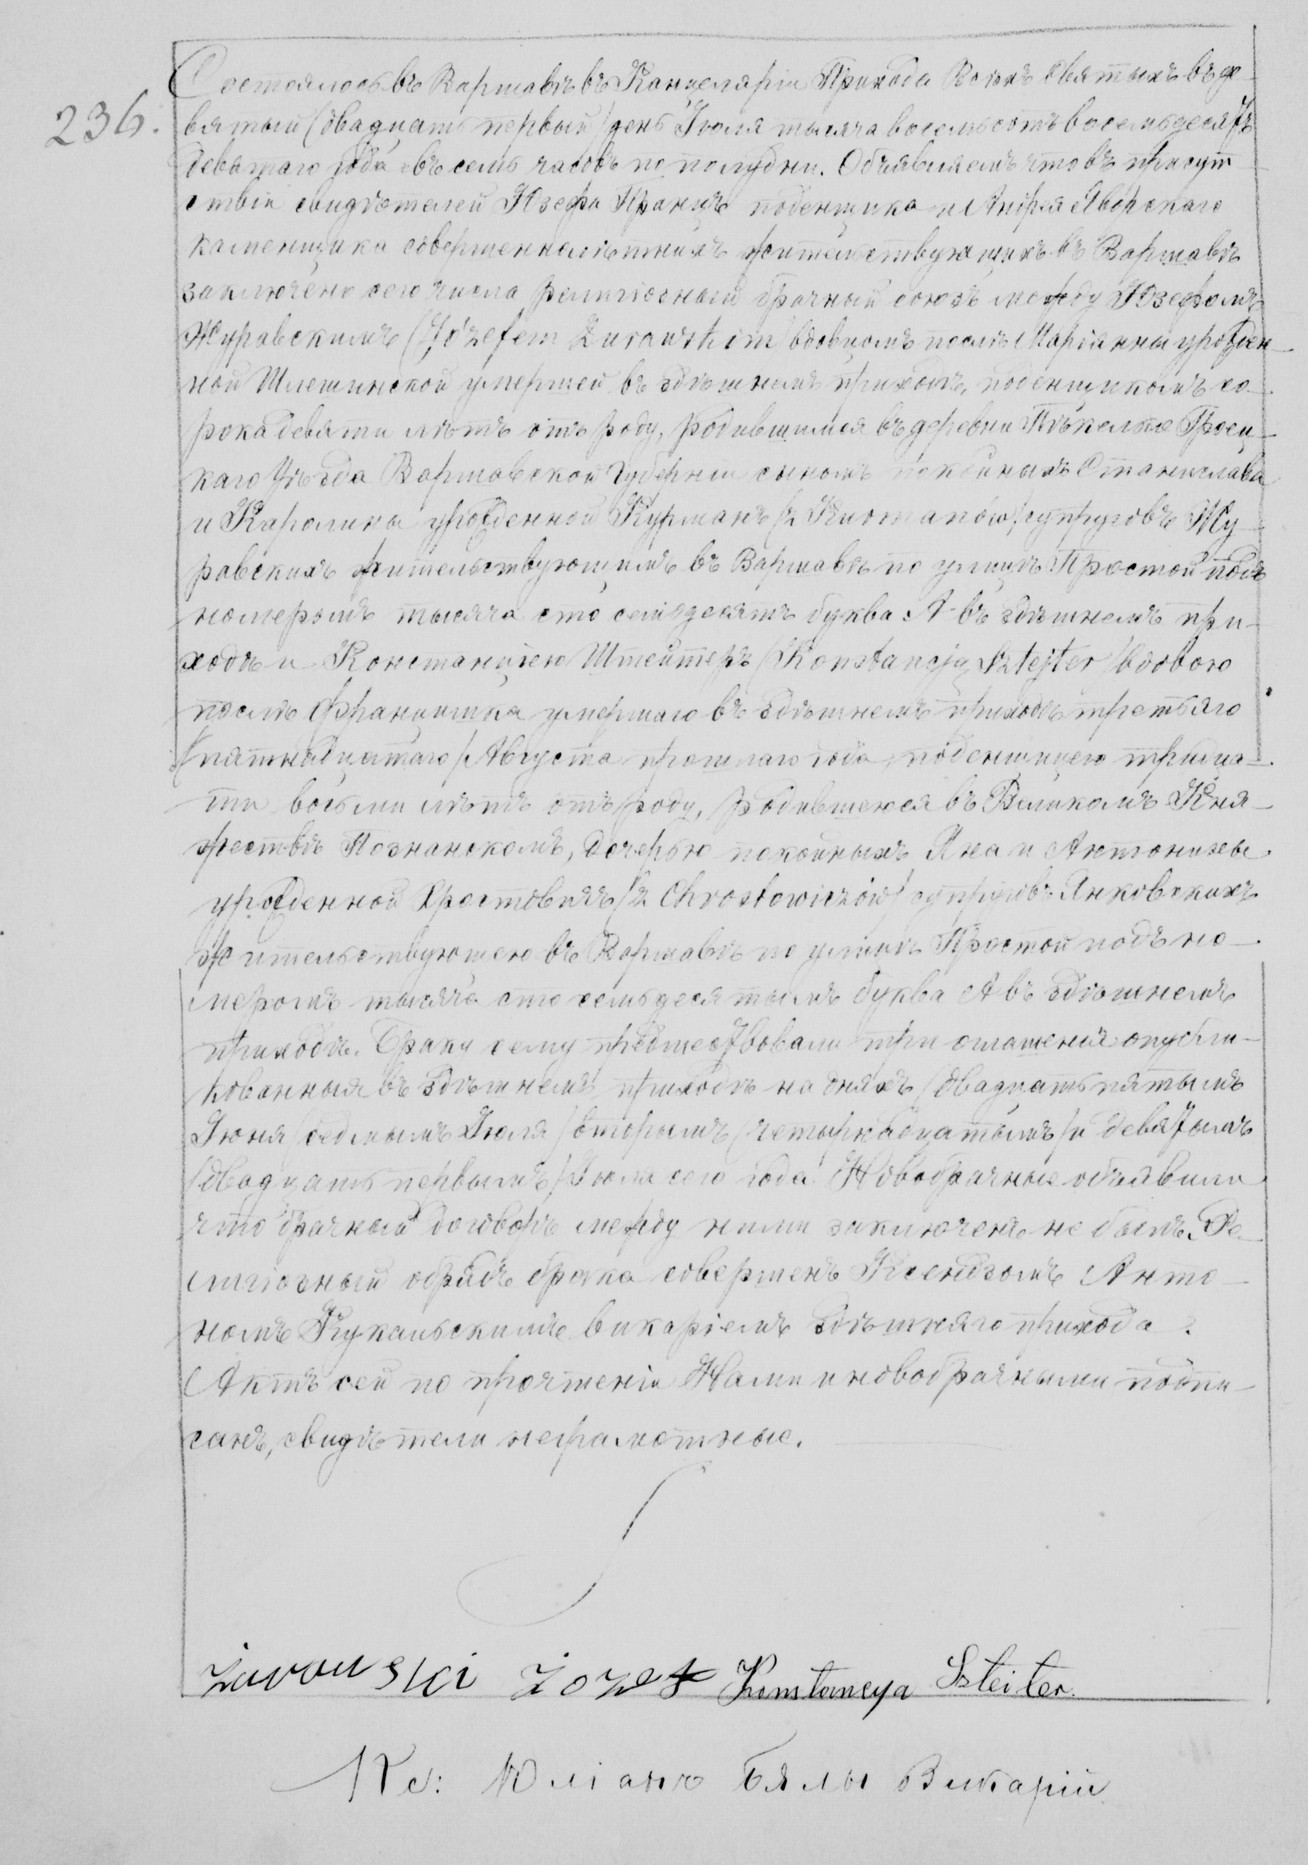 236.
Состоялось въ Варшавѣ въ Канцеляріи Прихода Всѣхъ Святыхъ въ де-
вятый /двадцать первый/ день Іюля тысяча восемьсотъ восемьдесятъ
девятаго года въ семь часовъ по полудни. Объявляемъ что въ присут-
ствіи свидѣтелей Юзефа поденщика и Андрея Яворскаго
каменщика совершеннолѣтнихъ жительствующихъ въ Варшавѣ
заключено сего числа религіозный брачный союзъ между Юзефомъ
Журавскимъ (Józefem Żurawskim/ вдовцомъ послѣ Маріанны урожден-
ной умершей въ здѣшнемъ приходѣ, поденщикомъ со-
рока девяти лѣтъ отъ роду, родившимся въ деревни Гроец-
каго Уѣзда Варшавской Губерніи сыномъ покойныхъ Станислава
и Каролины урожденной супруговъ Жу-
равскихъ жительствующимъ въ Варшавѣ по улицѣ Простой подъ
номеромъ тысяча сто семьдесятъ буква А въ здѣшнемъ при-
ходѣ и Констанціею Штейтеръ /Konstancją Sztejter/ вдовою
послѣ Францишка умершаго въ здѣшнемъ приходѣ третьяго
/пятнадцатаго/ Августа прошлаго года, поденщицею тридца-
ти восьми лѣтъ отъ роду, родившеюся въ Великомъ Кня-
жествѣ Познанскомъ, дочерью покойныхъ Яна и Антонины
урожденной Хростовичъ /z Chrostowiczów/ супруговъ Янковскихъ
жительствующею въ Варшавѣ по улицѣ Простой подъ но-
меромъ тысяча сто семьдесятымъ буква А въ здѣшнемъ
приходѣ. Браку сему предшествовали три оглашенія опубли-
кованныя въ здѣшнемъ приходѣ на дняхъ /двадцать пятымъ
Іюня /седьмымъ Іюля/ вторымъ /четырнадцатымъ/ и девятымъ
/двадцать первымъ/ Іюля сего года. Новобрачные объявили
что брачный договоръ между ними заключенъ не былъ. Ре-
лигіозный обрядъ брака совершенъ Ксендзомъ Анто-
номъ Кукальскимъ викаріемъ здѣшняго прихода.
Актъ сей по прочтеніи Нами и новобрачными подпи-
санъ, свидѣтели неграмотные.
Żurowski Jozef Konstancya Szteiter.
Кс: Юліанъ Бялы Викарій